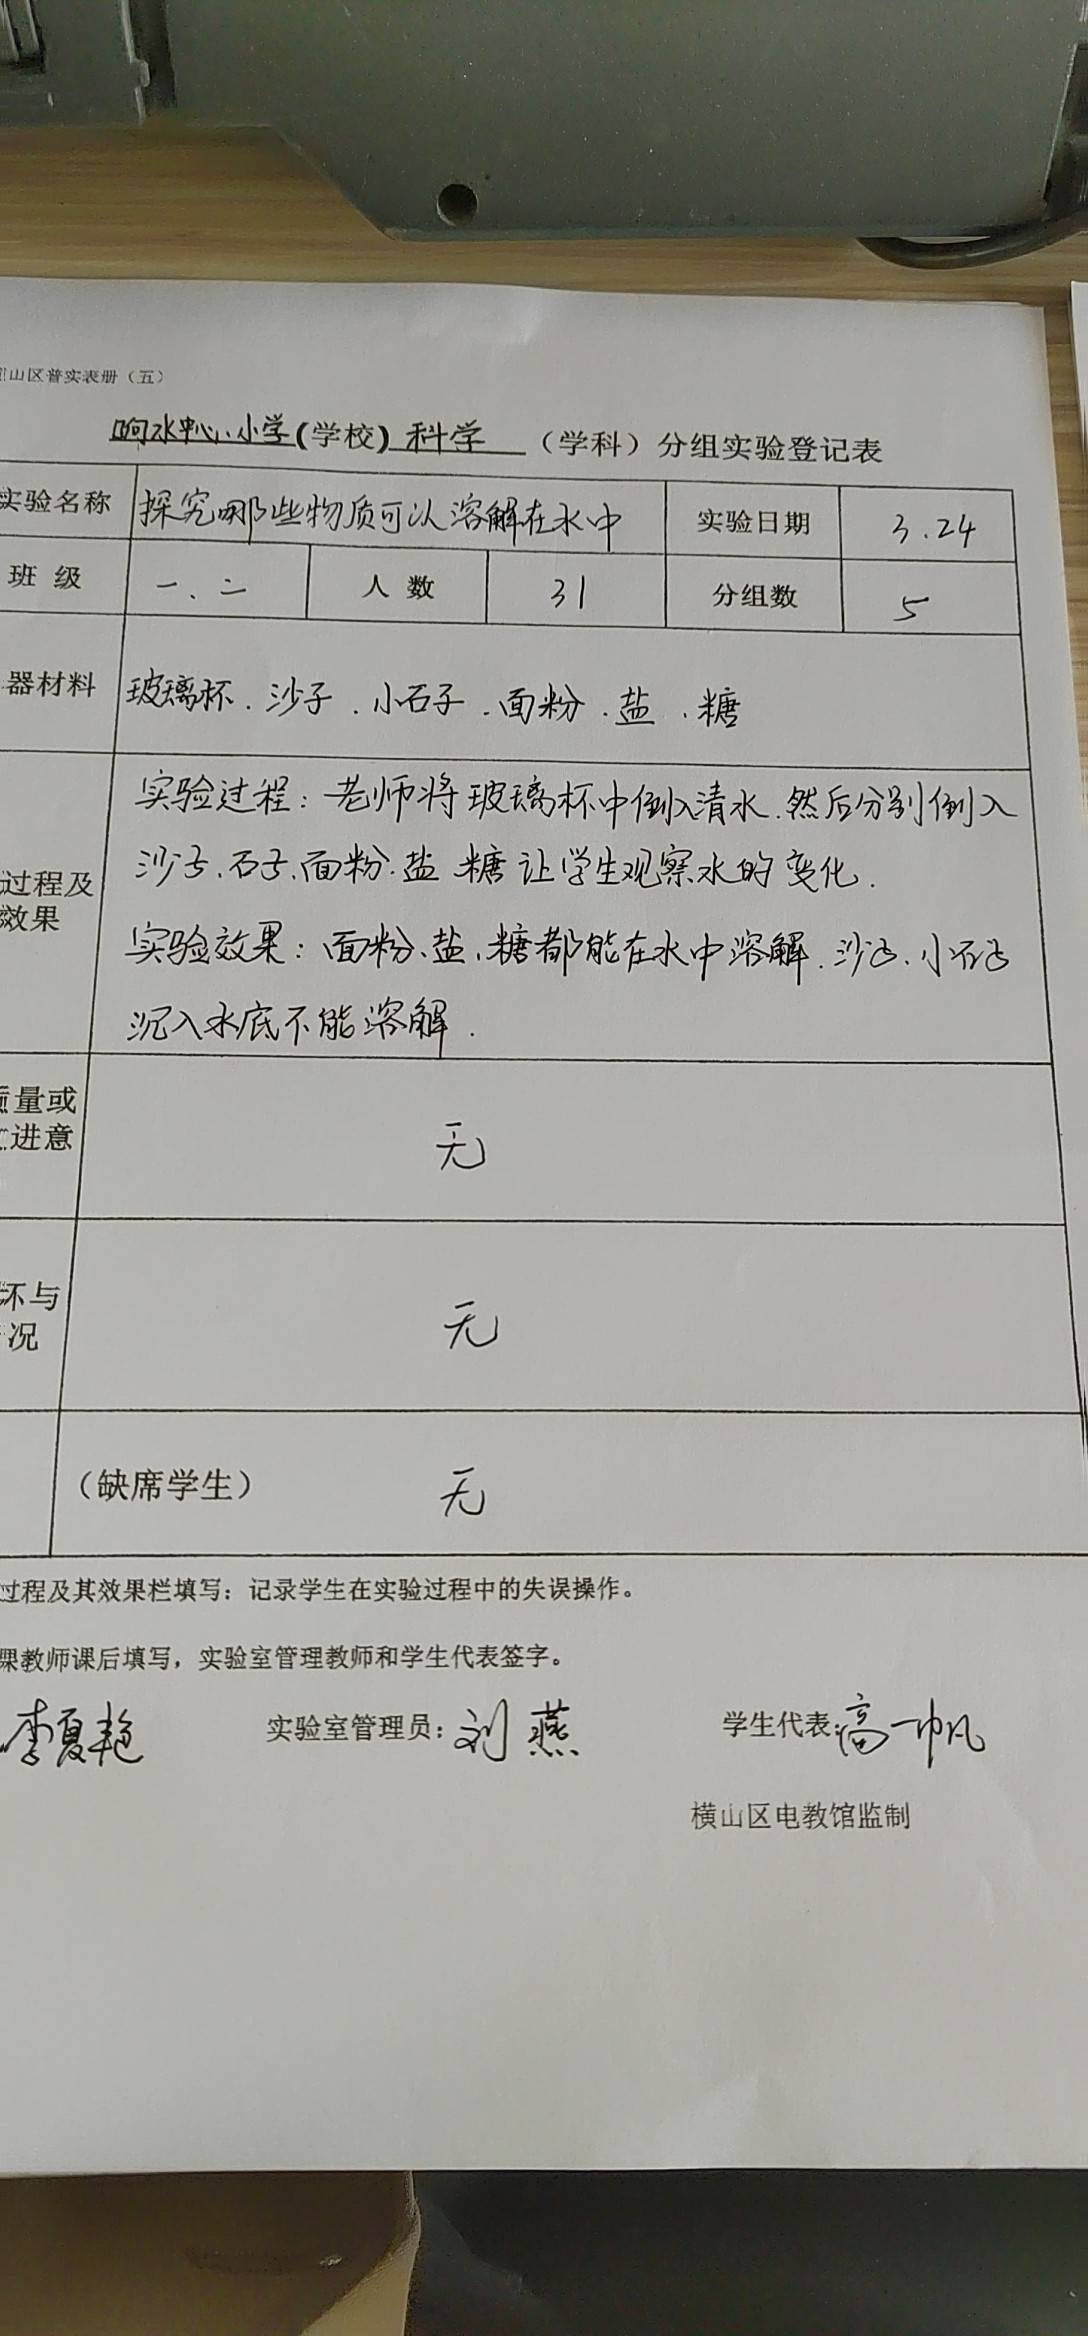 山区普实表册（五）
响水中心小学(学校) 科学 （学科）分组实验登记表
实验名称 探究哪些物质可以溶解在水中 实验日期 3.24
班级 一、二 人数 31 分组数 5
器材料 玻璃杯.沙子.小石子.面粉.盐.糖
实验过程：老师将玻璃杯中倒入清水.然后分别倒入
过程及 沙子.石子.面粉.盐 糖 让学生观察水的变化.
效果
实验效果：面粉、盐、糖都能在水中溶解.沙子、小石子
沉入水底不能溶解.
量或
进意 无
坏与
况 无
（缺席学生） 无
过程及其效果栏填写：记录学生在实验过程中的失误操作。
课教师课后填写，实验室管理教师和学生代表签字。
李夏艳 实验室管理员：刘燕 学生代表：高一帆
横山区电教馆监制